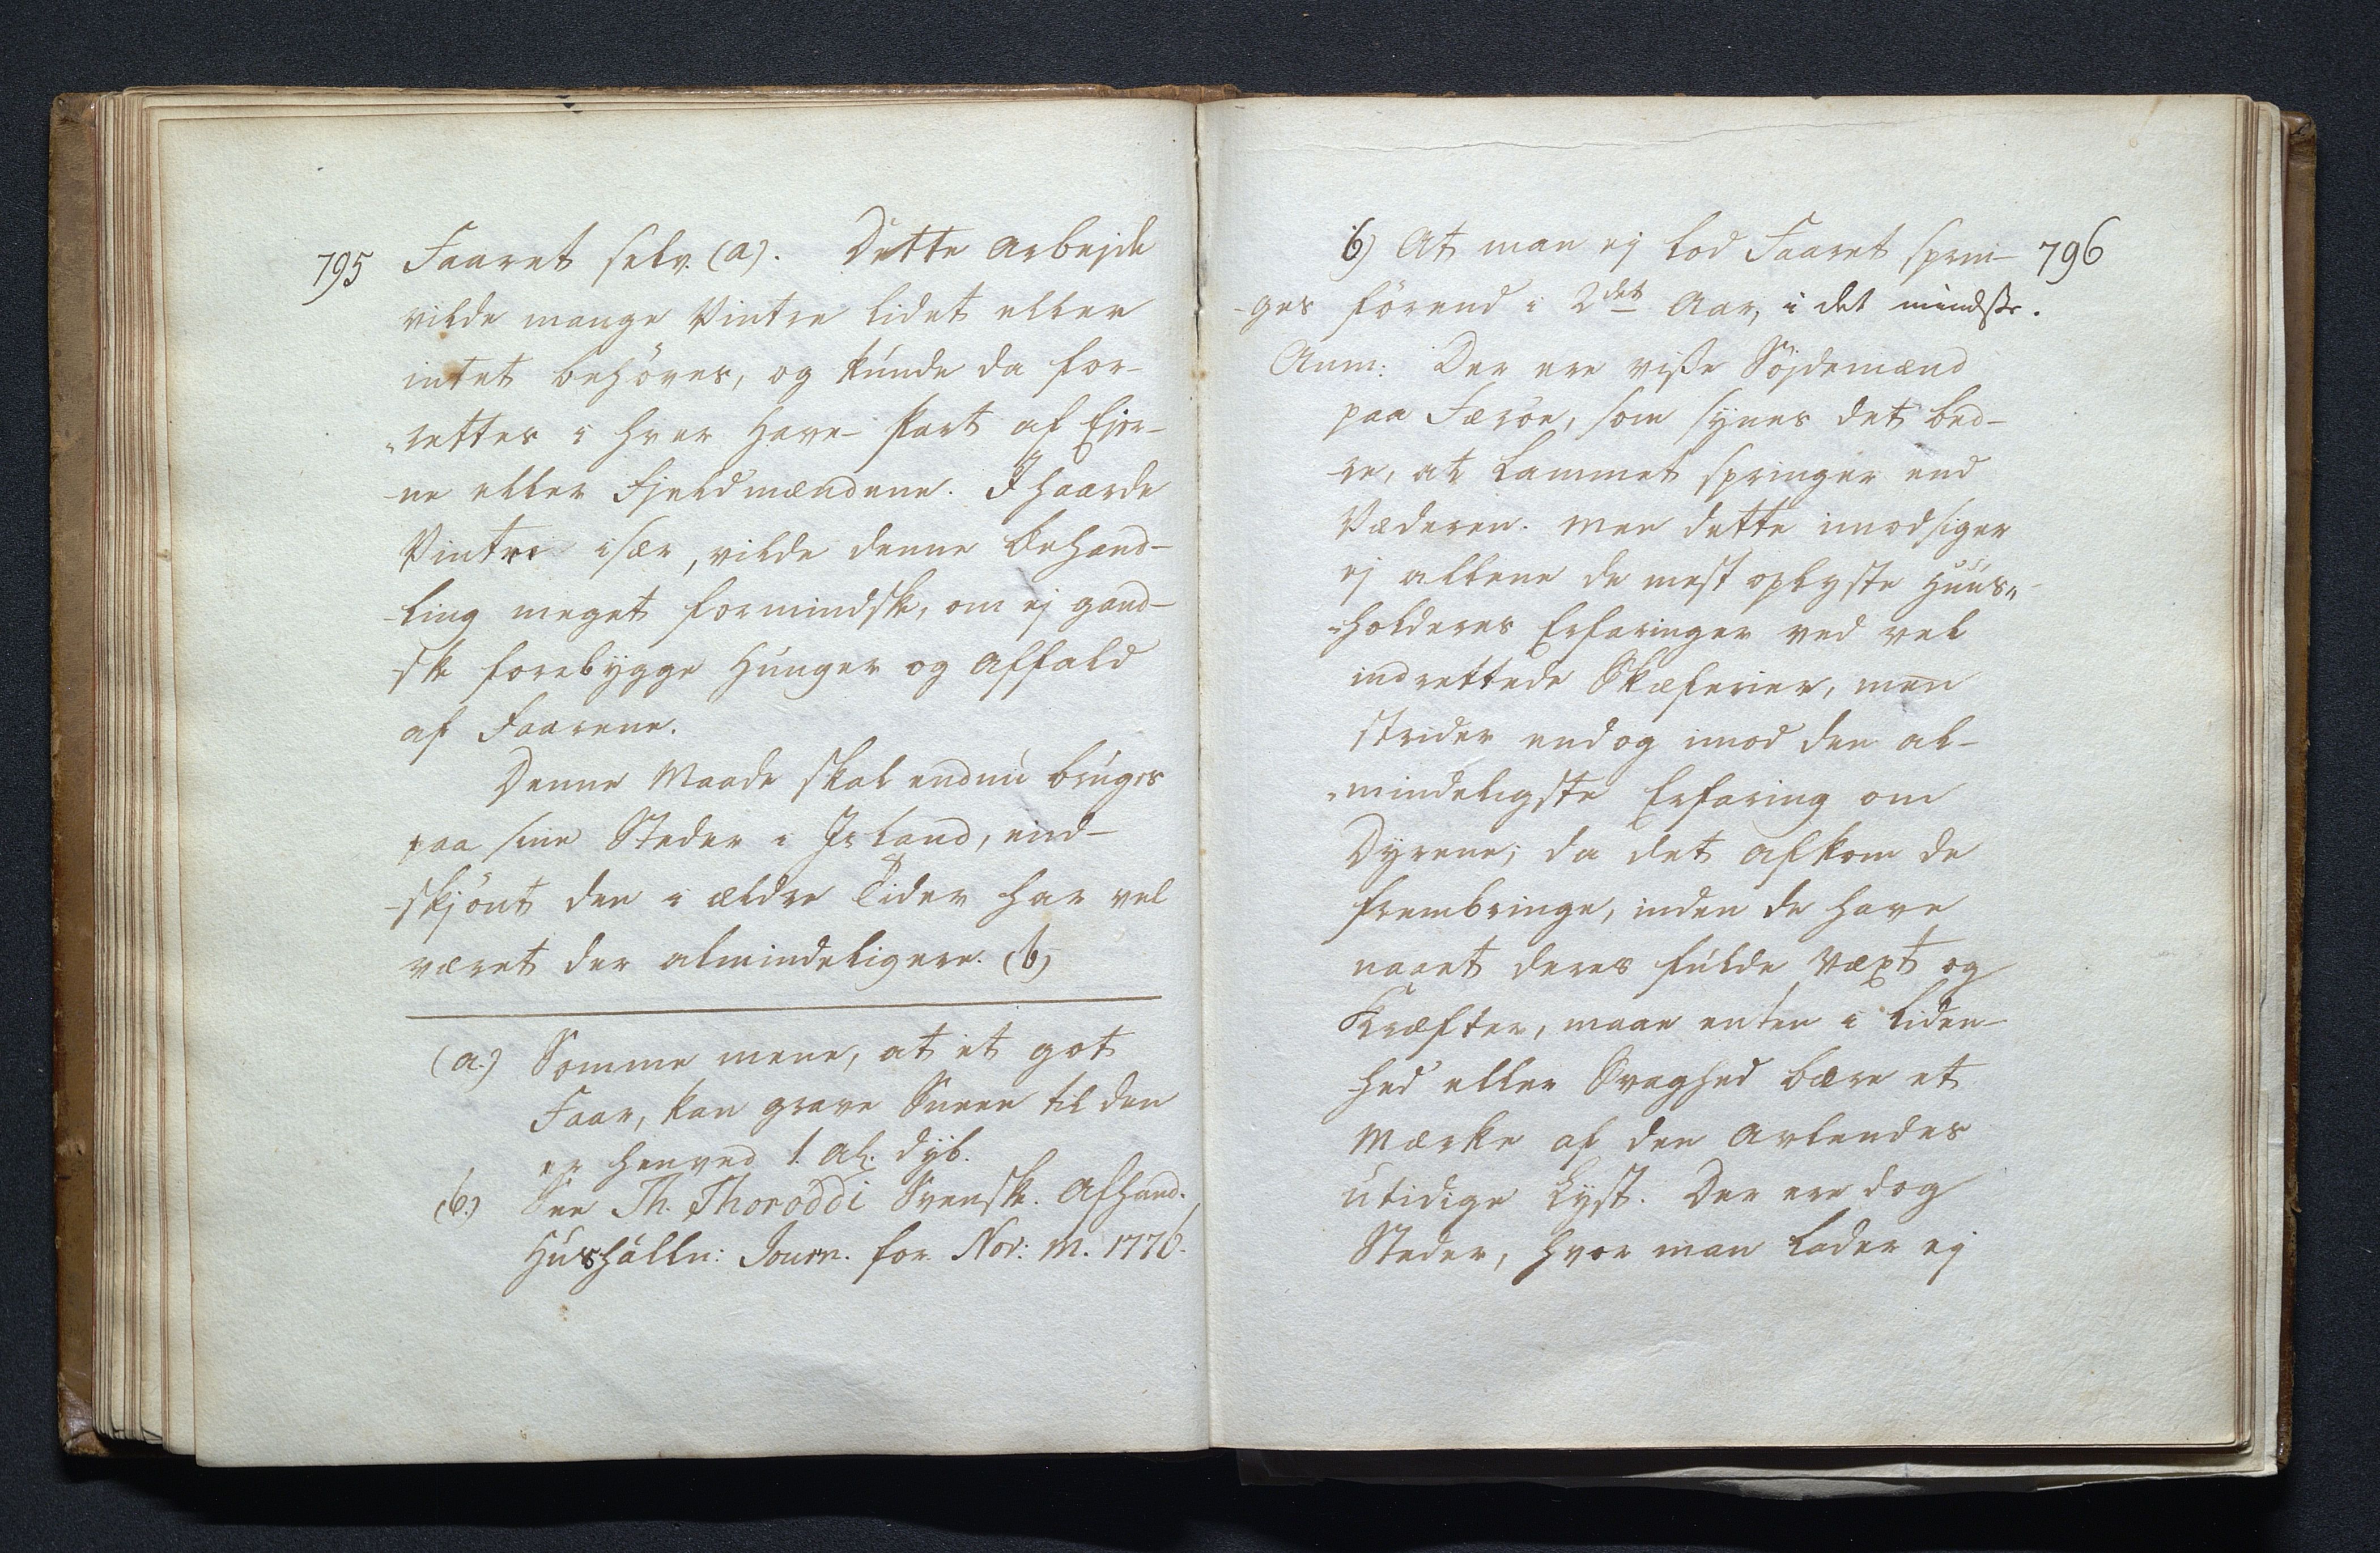 795
Faaret selv. (a). Dette Arbejde
vilde mange Vintre lidet eller
intet behöves, og kunde da for-
„rettes i hver Have-Part af Ejer-
-ne eller Fjeldmændene. I haarde
Vintre især, vilde denne Behand-
-ling meget formindske, om ej gand-
-ske forebygge Hunger og Affald
af Faarene.
Denne Maade skal endnu bruges
paa sine Steder i Island, end-
-skjönt den i ældre Tider har vel
været der almindeligere. (b)
(a.) Somme mene, at et got
Faar, kan grave Sneen til den
er henved 1. Al: dyb.
(b.) See Th. Thoroddi Svensk. Afhand.,
Hushålln: Journ. for Nov: M. 1776.
796
6) At man ej lod Faaret sprin-
-ges förend i 2det Aar, i det mindste.
Anm: Der ere visse Söjdemænd
paa Færöe, som synes det bed-
-re, at Lammet springer end
Væderen. Men dette imodsiger
ej allene de mest oplyste Huus„
-holderes Erfaringer ved vel
indrettede Skæferier, men
strider endog imod den al-
„mindeligste Erfaring om
Dyrene; da det Afkom de
frembringe, inden de have
naaet deres fulde Væxt og
Kræfter, maae enten i Liden-
-hed eller Svaghed bære et
Mærke af den Avlendes
utidige Lyst. Der ere dog
Steder, hvor man lader ej